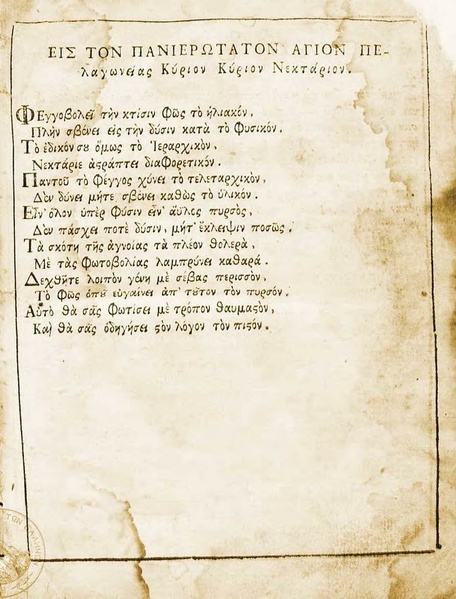 ΕΙΣ ΤΟΝ ΠΑΝΙΕΡΩΤΑΤΟΝ ΑΓΙΟΝ ΠΕ-
λαγωνείας Κύριον Κύριον Νεκτάριον.
ΦΕγγοβολεῖ τὴν κτίσιν Φῶς τὸ ἡλιακόν,
Πλὴν σβύνει εἰς τὴν δύσιν κατὰ τὸ Φυσικόν.
Τὸ ἐδικόν σου ὅμως τὸ Ἱεραρχικόν,
Νεκτάριε ἀϛράπτει διαΦορετικόν.
Παντοῦ τὸ Φέγγος χύνει τὸ τελεταρχικὸν,
Δὲν δύνει μήτε σβύνει καθὼς τὸ ὑλικόν.
Εἶν' ὅλον ὑπὲρ Φύσιν εἶν' ἄϋλος πυρσὸς,
Δὲν πάσχει ποτὲ δύσιν, μήτ' ἔκλειψιν ποσῶς.
Τὰ σκότη τῆς ἀγνοίας τὰ πλέον θολερὰ,
Μὲ τὰς Φωτοβολίας λαμπρύνει καθαρά.
Δεχθῆτε λοιπὸν γένη μὲ σέβας περισσὸν,
Τὸ Φῶς ὁποῦ εὐγαίνει ἀπ' τοῦτον τὸν πυρσόν.
Αὐτὸ θὰ σᾶς Φωτίσει μὲ τρόπον θαυμαϛὸν,
Καὶ θὰ σᾶς ὁδηγήσει ϛὸν λόγον τὸν πιϛόν.